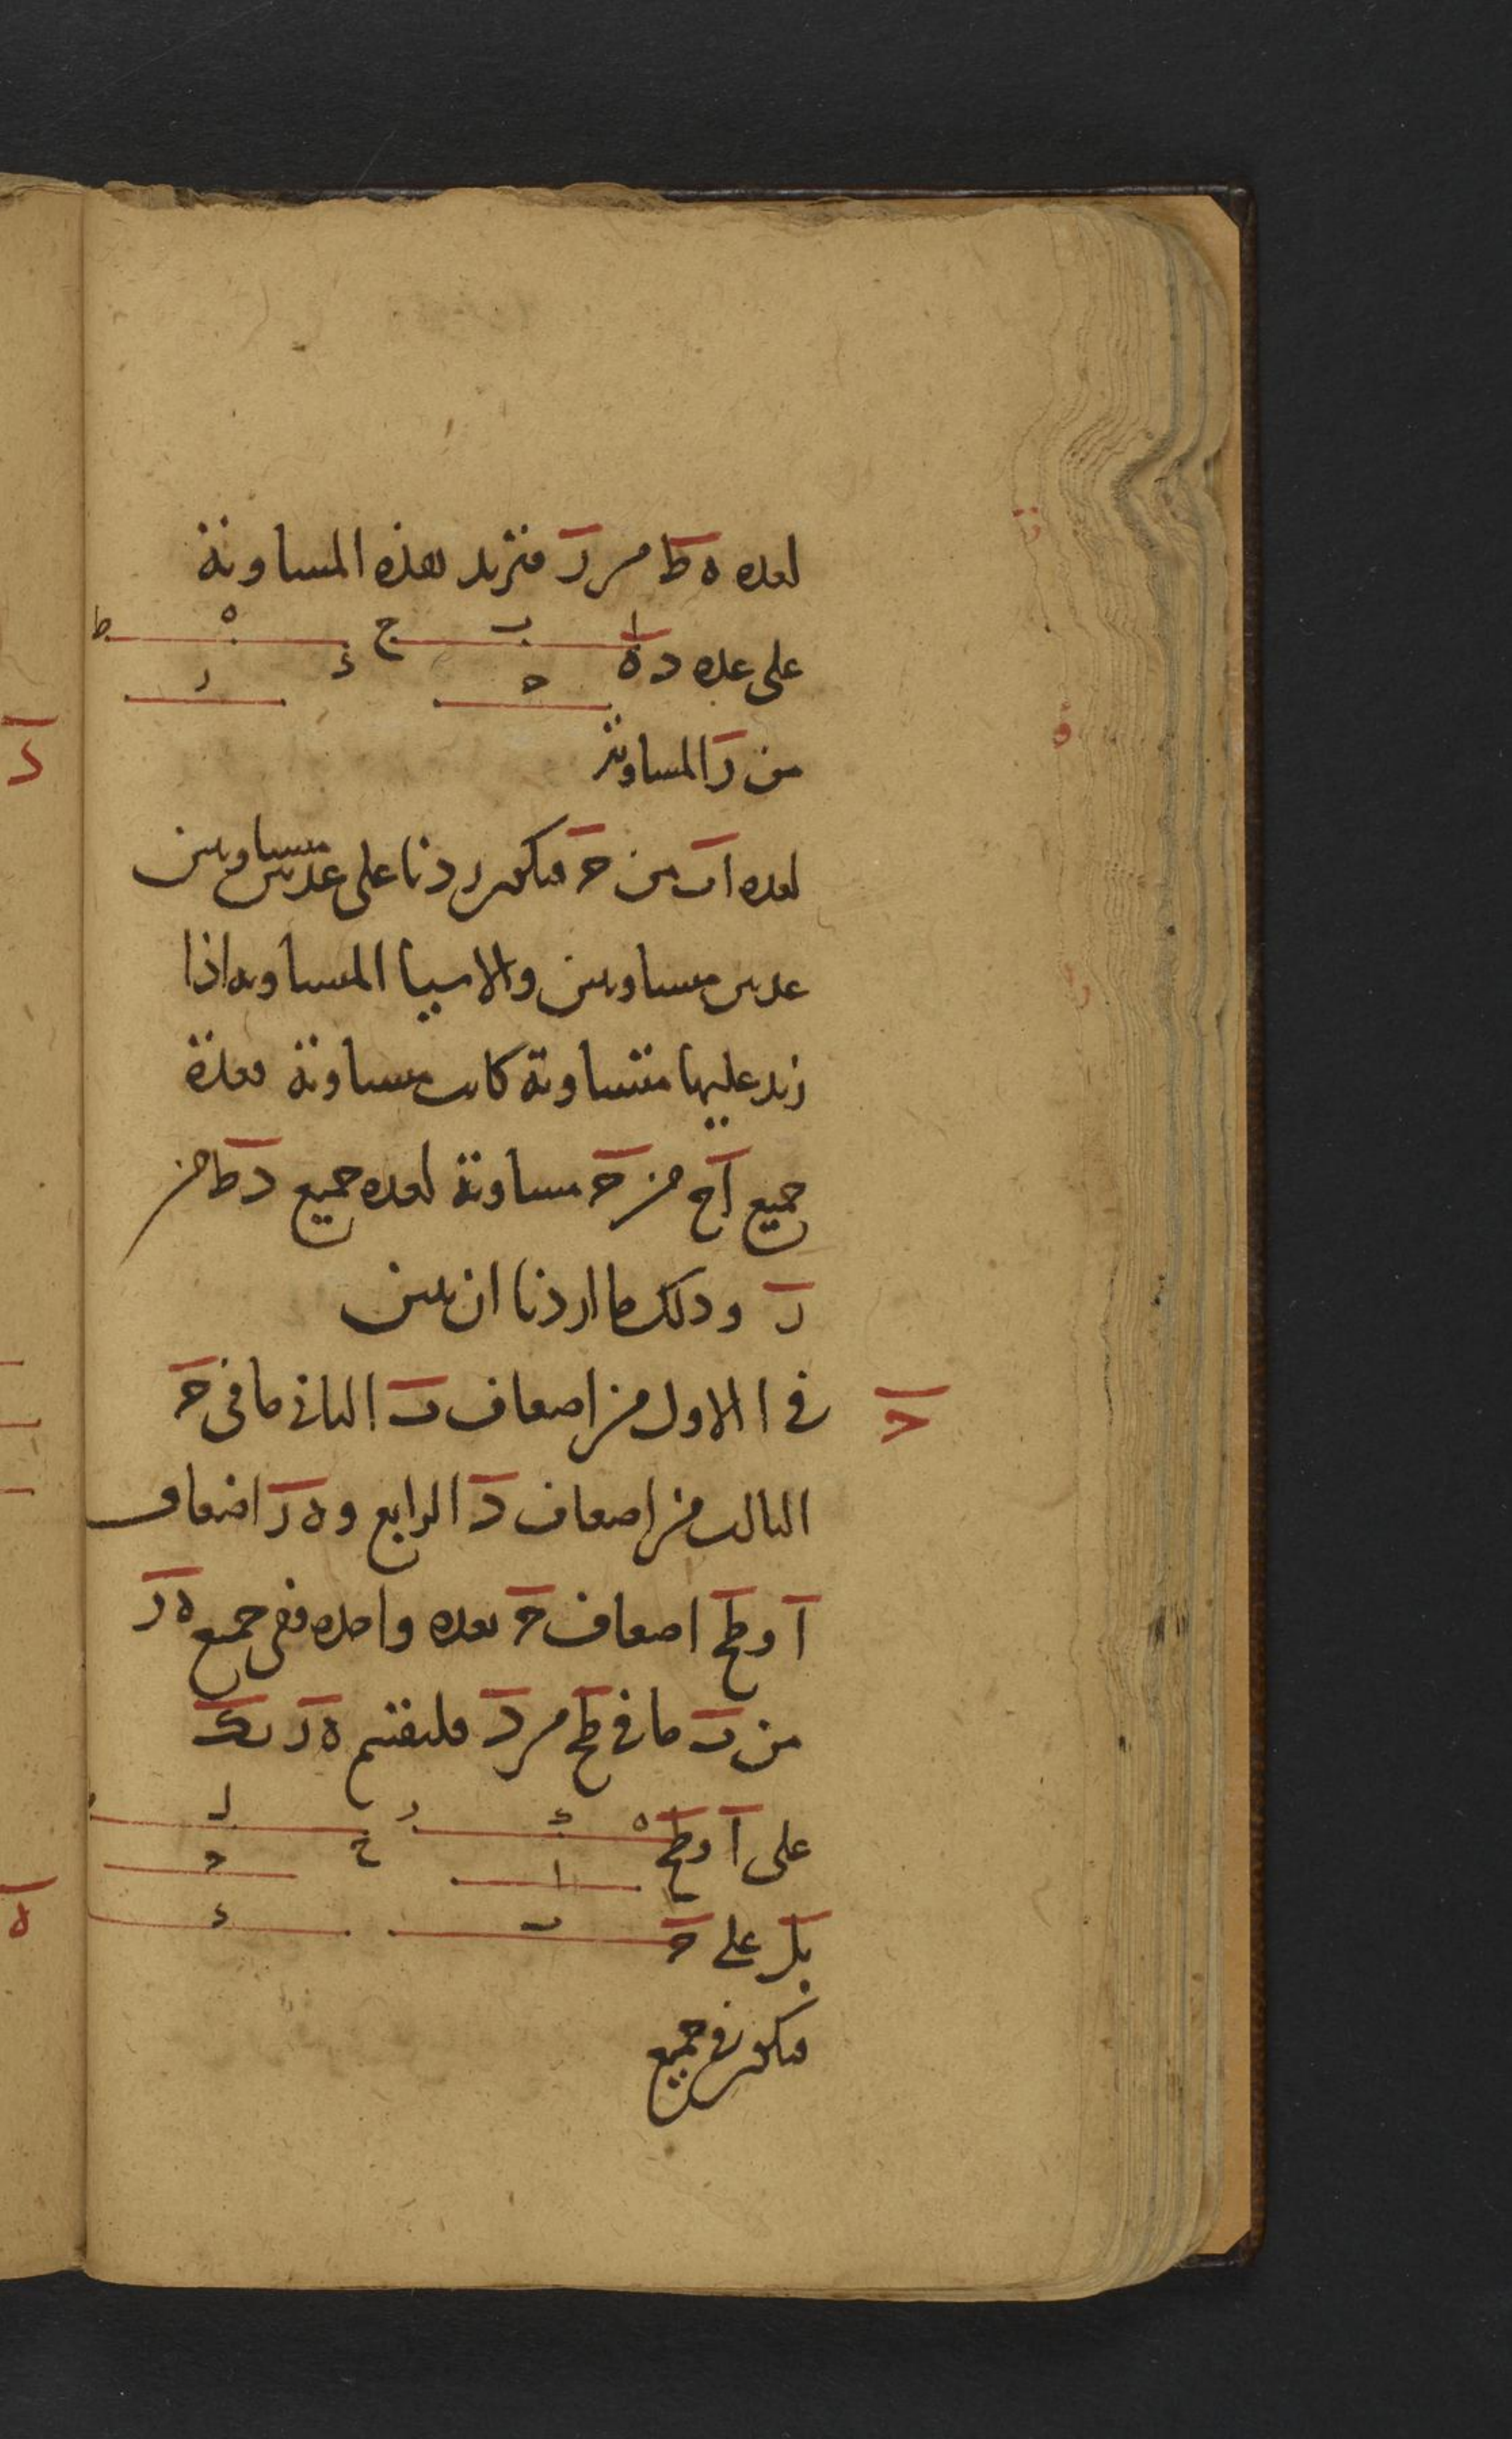 لعده ه ط من ر فنزيد هذه المساوية
ا ب ج د ه ط
على عده د ه
ح ر
من ر المساوية
لعده ا ب من ح فيكون زدنا على عدتين متساويتين
عدتين متساويتين والاشيا المتساويه اذا
زيد عليها متساوية كانت متساوية فعدة
جميع ا ج من ح مساوية لعده جميع د ط من
ر وذلك ما اردنا ان نبين
ح
في ا الاول من اضعاف ب الثاني ما في ح
الثالث من اضعاف د الرابع و ه ر اضعاف
ا و ط ح اضعاف ح بعده واحده ففي جميع ه ر
من ب ما في ط ح من د فليقتسم ه ر بك
على ا و ط ح
ه ك ر ح ل
ا ح
بل على ح
ب د
فيكون في جميع
د
ه